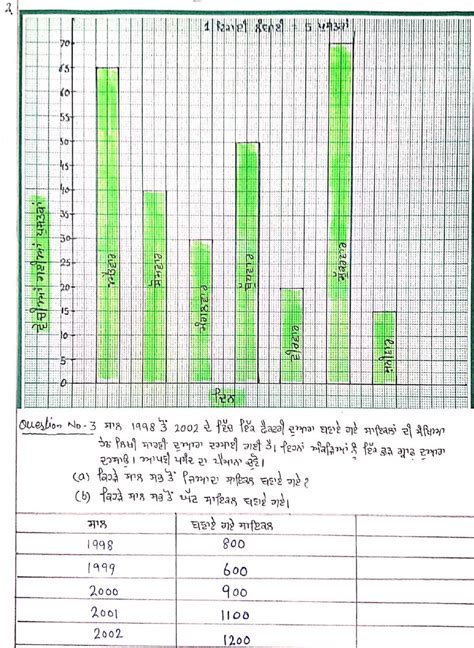 2
1 ਇਕਾਈ ਲੰਬਾਈ = 5 ਪੁਸਤਕਾਂ
70
65
60
55
50
45
40
35
30
25
20
15
10
5
0
ਵੇਚੀਆਂ ਗਈਆਂ ਪੁਸਤਕਾਂ
ਐਤਵਾਰ
ਸੋਮਵਾਰ
ਮੰਗਲਵਾਰ
ਬੁੱਧਵਾਰ
ਵੀਰਵਾਰ
ਸ਼ੁੱਕਰਵਾਰ
ਸ਼ਨੀਵਾਰ
ਦਿਨ
Question No-3 ਸਾਲ 1998 ਤੋਂ 2002 ਦੇ ਵਿੱਚ ਇੱਕ ਫੈਕਟਰੀ ਦੁਆਰਾ ਬਣਾਏ ਗਏ ਸਾਇਕਲਾਂ ਦੀ ਸੰਖਿਆ
ਹੇਠ ਲਿਖੀ ਸਾਰਣੀ ਦੁਆਰਾ ਦਰਸਾਈ ਗਈ ਹੈ। ਇਹਨਾਂ ਅੰਕੜਿਆਂ ਨੂੰ ਇੱਕ ਛੜ ਗ੍ਰਾਫ ਦੁਆਰਾ
ਦਰਸਾਉ। ਆਪਣੀ ਪਸੰਦ ਦਾ ਪੈਮਾਨਾ ਚੁਣੋ।
(a) ਕਿਹੜੇ ਸਾਲ ਸਭ ਤੋਂ ਜ਼ਿਆਦਾ ਸਾਇਕਲ ਬਣਾਏ ਗਏ?
(b) ਕਿਹੜੇ ਸਾਲ ਸਭ ਤੋਂ ਘੱਟ ਸਾਇਕਲ ਬਣਾਏ ਗਏ।
ਸਾਲ ਬਣਾਏ ਗਏ ਸਾਇਕਲ
1998 800
1999 600
2000 900
2001 1100
2002 1200